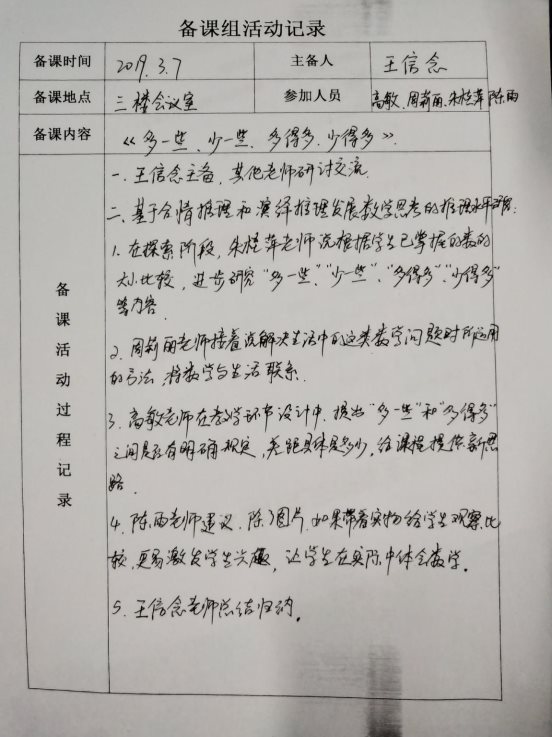 备课组活动记录
备课时间 2019.3.7 主备人 王信念
备课地点 三楼会议室 参加人员 高敏、周莉丽、朱桂萍、陈雨
备课内容 《多一些、少一些、多得多、少得多》
备课活动过程记录
一.王信念主备,其他老师研讨交流.
二、基于合情推理和演绎推理发展数学思考的推理水平
1.在探索阶段,朱桂萍老师说根据学生已掌握的数的
大小比较,进步研究“多一些”、“少一些”、“多得多”、“少得多”
等内容.
2.周莉丽老师接着说解决生活中的这类数学问题时所运用
的方法.将数学与生活联系.
3.高敏老师在教学环节设计中,提出“多一些”和“多得多”
之间是否有明确规定,差距具体是多少,给课程提供新思
路.
4.陈雨老师建议.除了图片,如果带着实物给学生观察、比
较.更易激发学生兴趣,让学生在实际中体会数学。
5.王信念老师总结归纳。